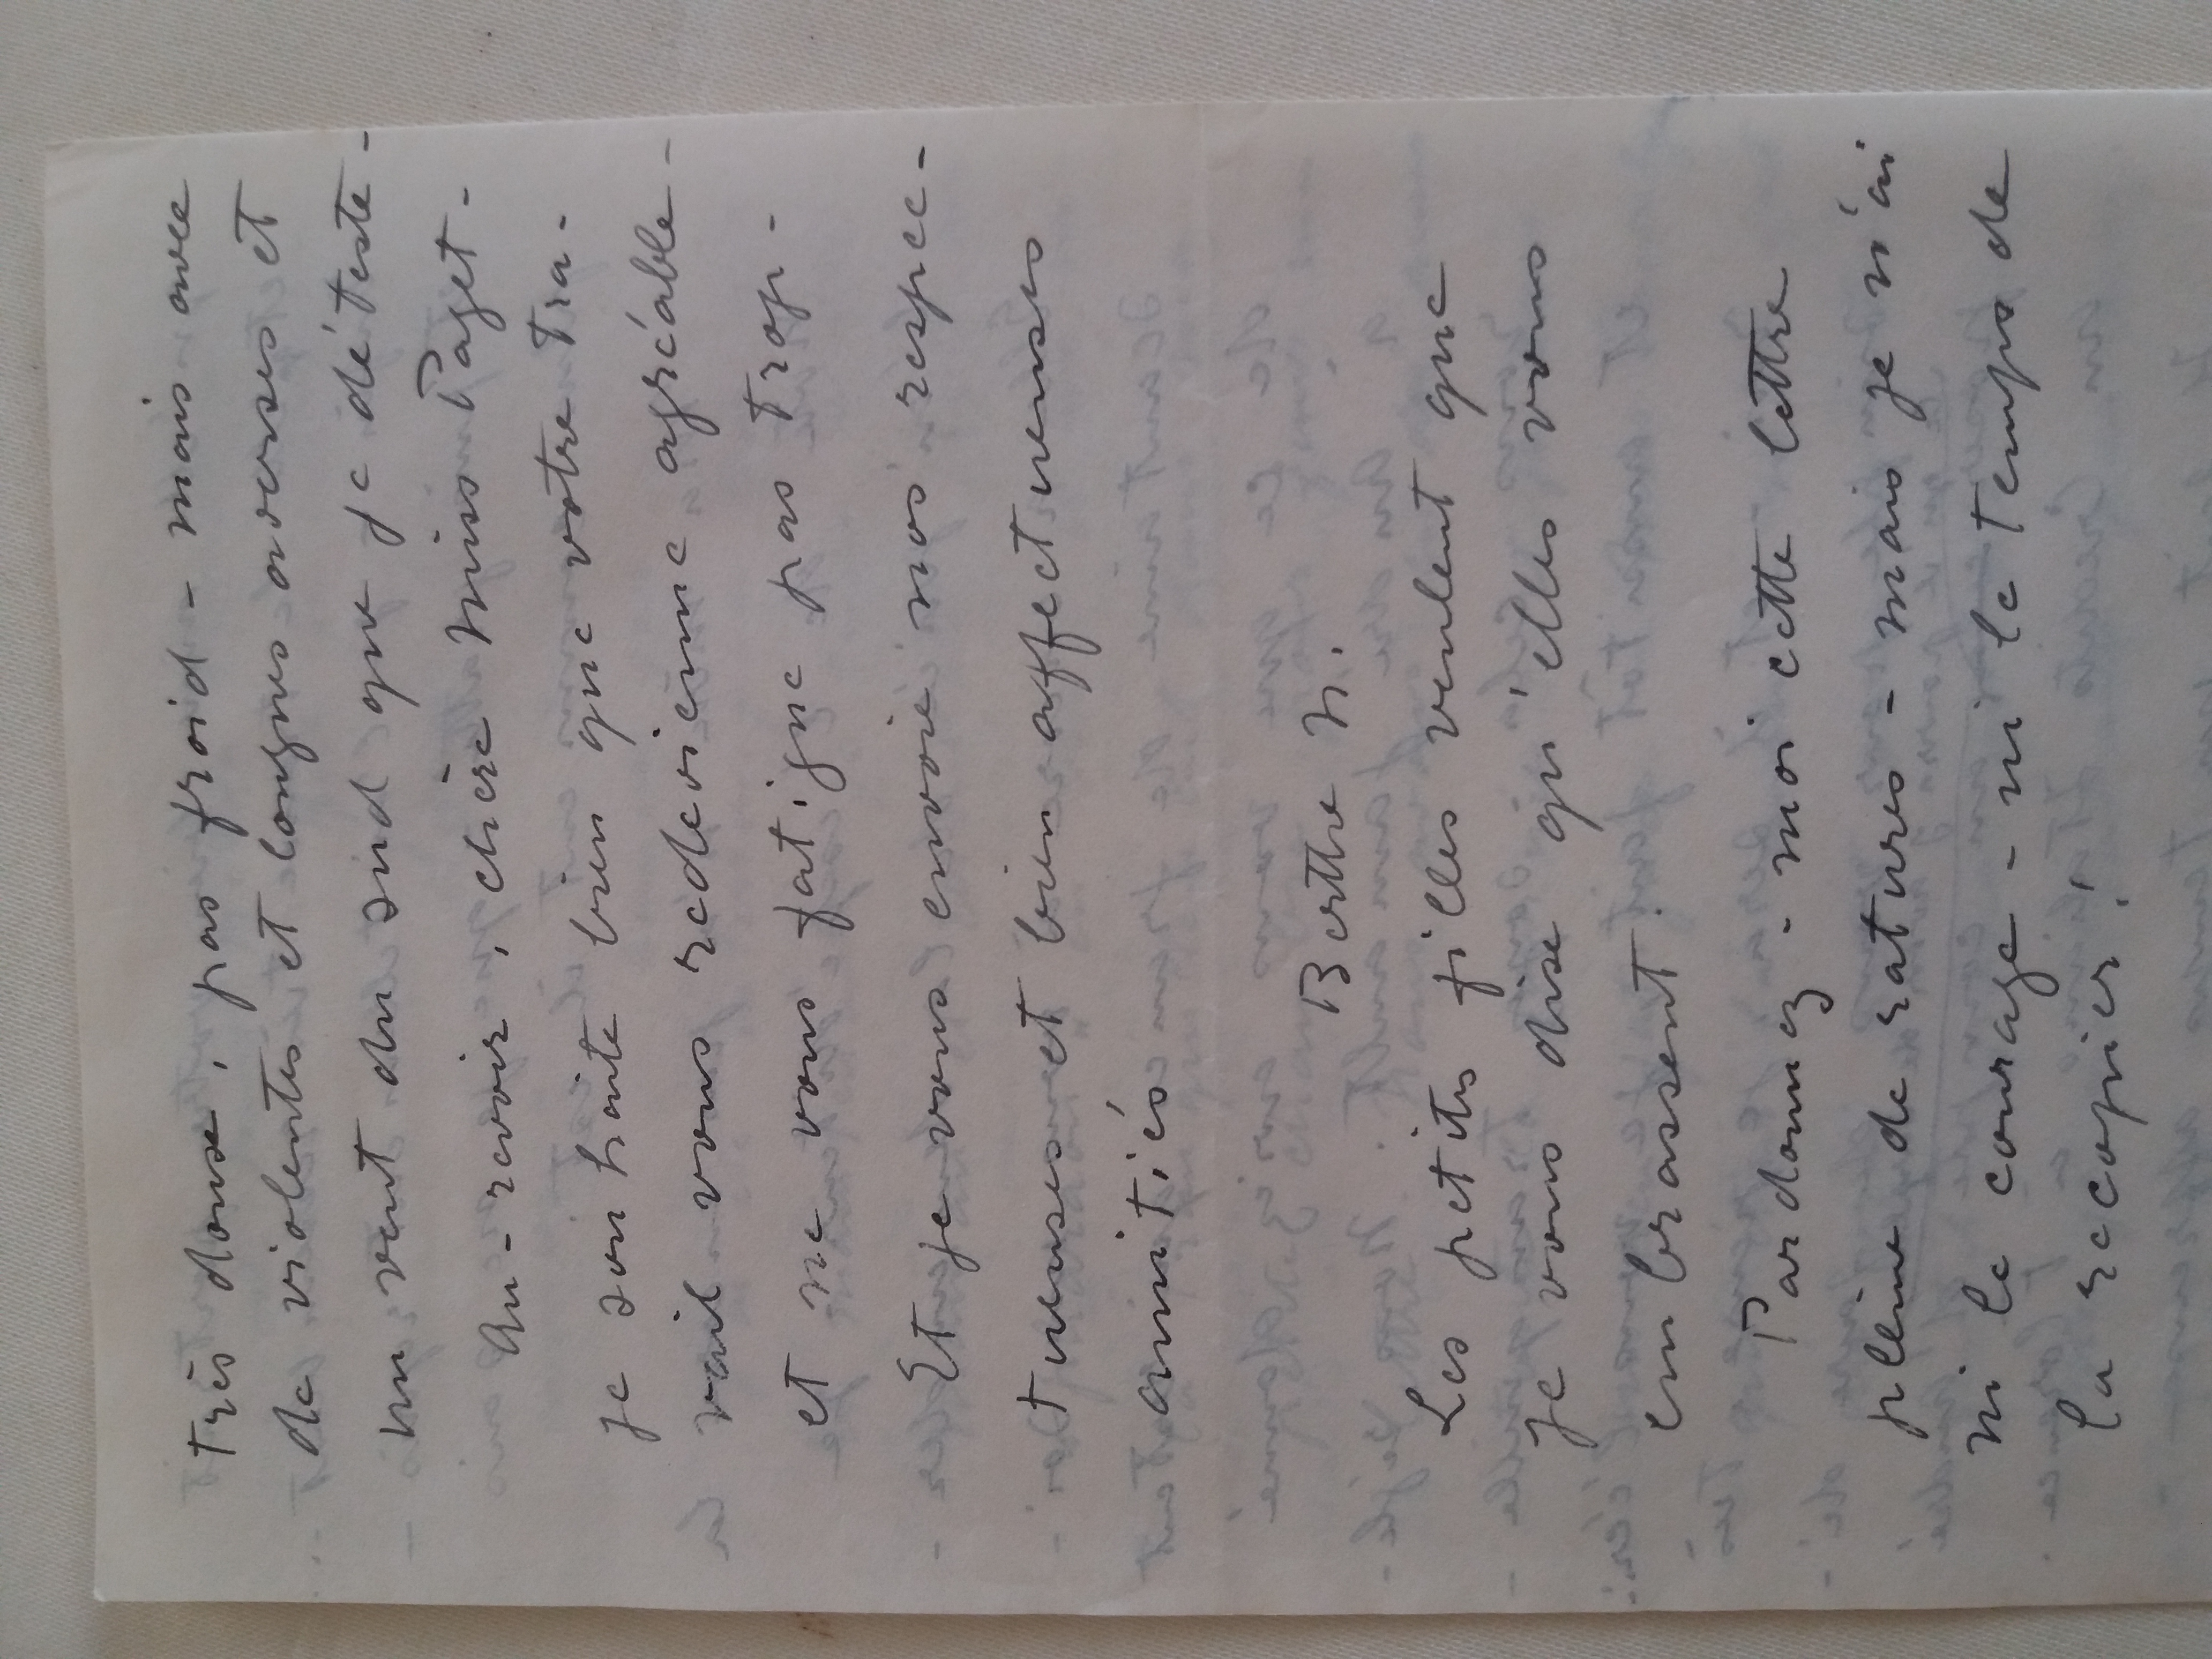 très douce, pas froid - mais avec
de violentes et longues averses et
un vent du sud que je déteste -
Au-revoir, chère Miss Paget -
je souhaite bien que votre tra-
vail vous redevienne agréable -
et ne vous fatigue pas trop -
Et je vous envoie nos respec-
tueuses et bien affectueuses
amitiés
Berthe N.
Les petites filles veulent que
je vous dise qu'elles vous
embrassent.
Pardonnez-moi cette lettre
pleine de ratures - mais je n'ai
ni le courage - ni le temps de
la recopier!